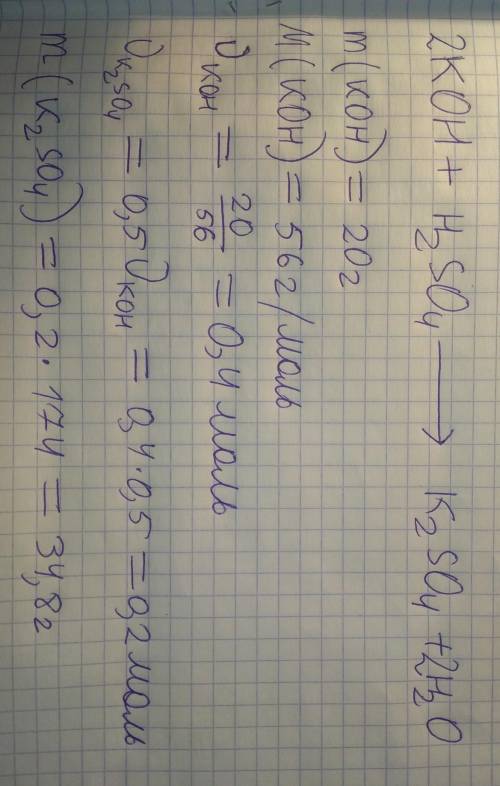 2KOH + H₂SO₄ ⟶ K₂SO₄ + 2H₂O
m(KOH) = 20г
M(KOH) = 56г/моль
ν KOH = 20/56 = 0,4 моль
ν K₂SO₄ = 0,5 ν KOH = 0,4·0,5 = 0,2 моль
m(K₂SO₄) = 0,2·174 = 34,8г